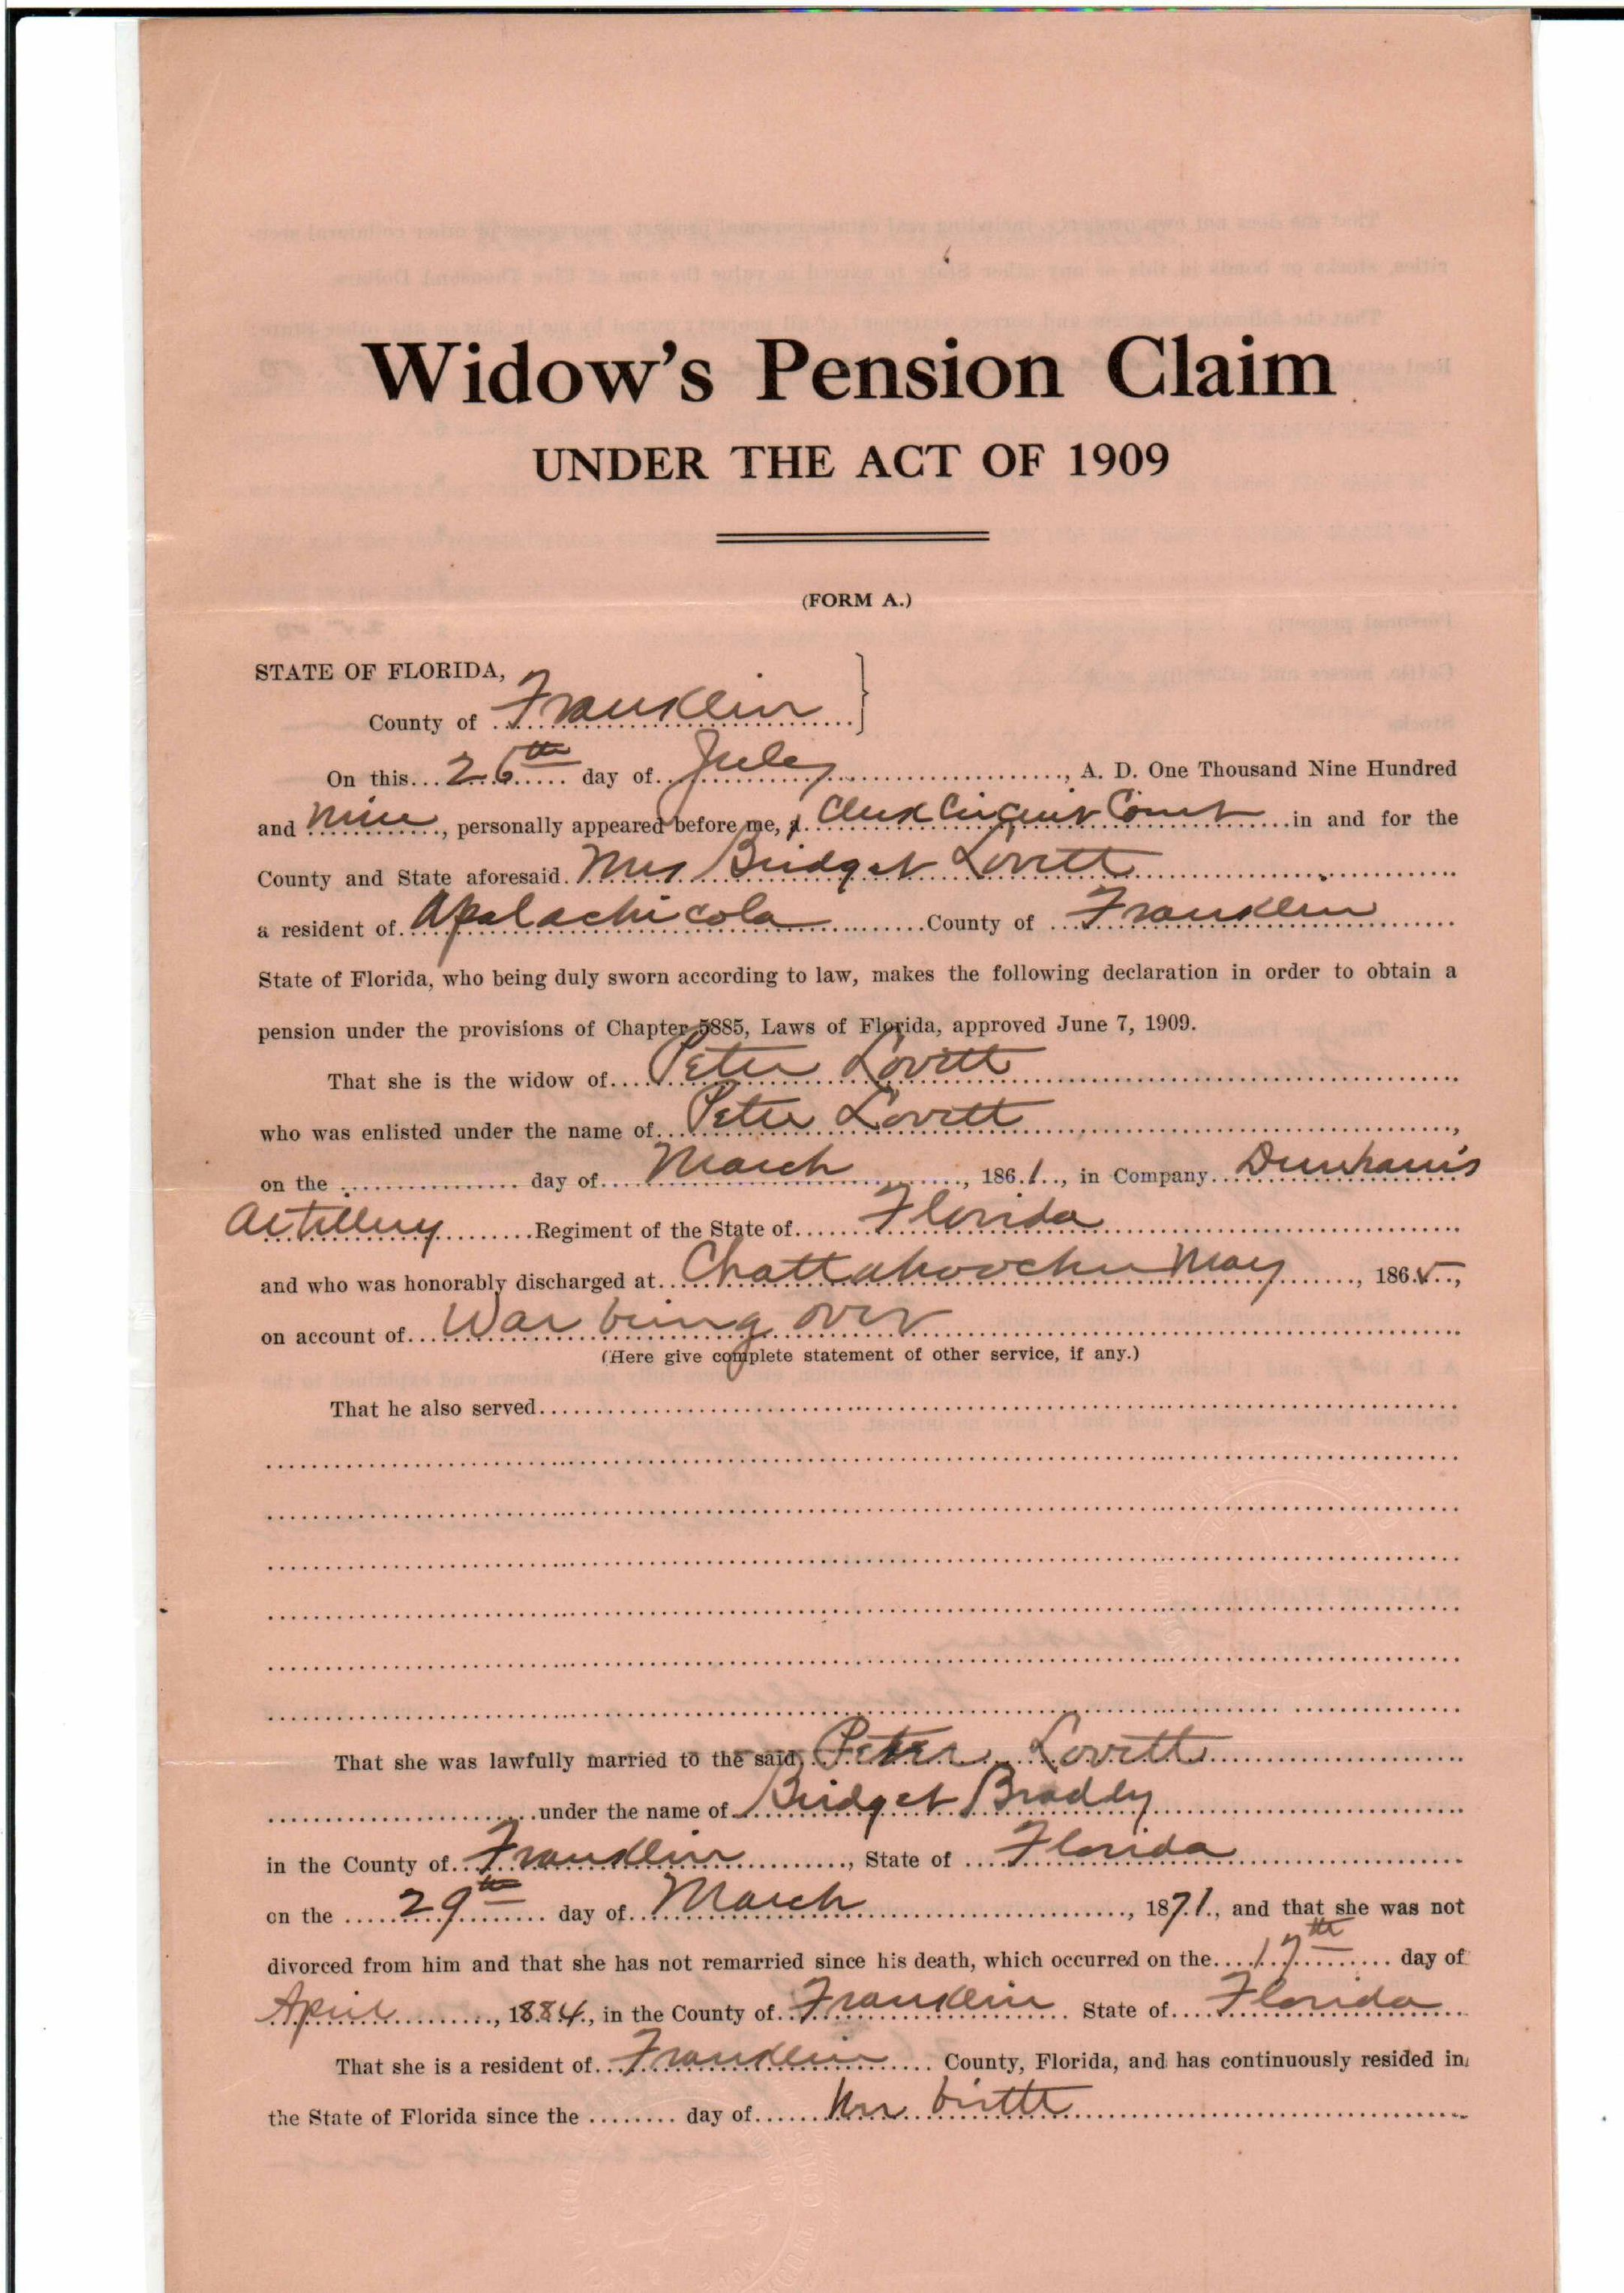 Widow's Pension Claim
UNDER THE ACT OF 1909
(FORM A.)
STATE OF FLORIDA,
County of Franklin
On this 26th day of July, A. D. One Thousand Nine Hundred
and nine, personally appeared before me, Clerk Circuit Court in and for the
County and State aforesaid. Mrs Bridget Lovett
a resident of Apalachicola County of Franklin
State of Florida, who being duly sworn according to law, makes the following declaration in order to obtain a
pension under the provisions of Chapter 5885, Laws of Florida, approved June 7, 1909.
That she is the widow of Peter Lovett
who was enlisted under the name of Peter Lovett,
on the day of March, 1861, in Company Dunham's
Artillery Regiment of the State of Florida
and who was honorably discharged at Chattahoochee May, 1865,
on account of War being over
(Here give complete statement of other service, if any.)
That he also served
That she was lawfully married to the said Peter Lovett
under the name of Bridget Braddy
in the County of Franklin, State of Florida
on the 29th day of March, 1871, and that she was not
divorced from him and that she has not remarried since his death, which occurred on the 17th day of
April, 1884, in the County of Franklin State of Florida
That she is a resident of Franklin County, Florida, and has continuously resided in
the State of Florida since the day of her birth